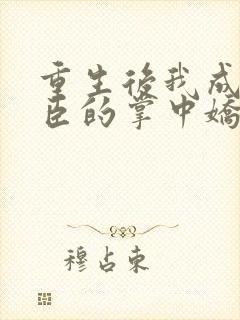 重生後我成
臣的掌中嬌
穆占東